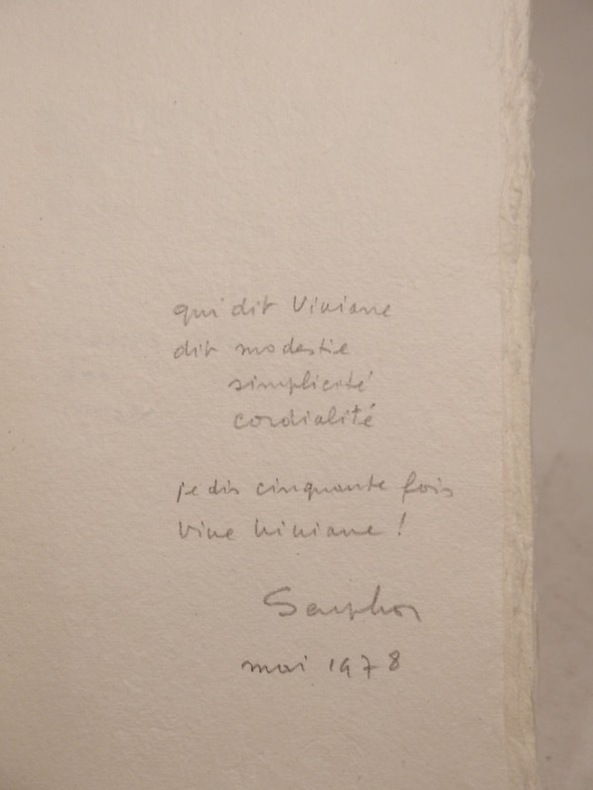 qui dit Viviane
dit modestie
simplicité
cordialité
je dis cinquante fois
vive Viviane !
Seuphor
mai 1978